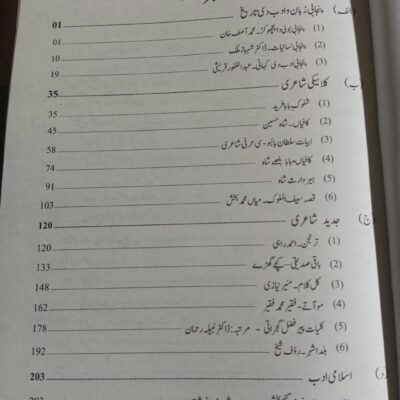 (الف) پنجابی زبان و ادب دی تاریخ 01
(1) پنجابی بولی دا پچھوکڑ۔ محمد آصف خان 01
(2) پنجابی لسانیات۔ ڈاکٹر شہباز ملک 10
(3) پنجابی ادب دی کہانی۔ عبدالغفور قریشی 19
(ب) کلاسیکی شاعری 35
(1) شلوک بابا فرید 35
(2) کافیاں۔ شاہ حسین 45
(3) ابیات سلطان باہو۔ سی حرفی شاعری 58
(4) کافیاں بابا بلھے شاہ 74
(5) ہیر وارث شاہ 91
(6) قصہ سیف الملوک۔ میاں محمد بخش 103
(ج) جدید شاعری 120
(1) ترنجن۔ احمد راہی 120
(2) باقی صدیقی۔ کچے گھڑے 133
(3) کل کلام۔ منیر نیازی 148
(4) موآتے۔ فقیر محمد فقیر 162
(5) کلیات پیر فضل گجراتی - مرتبہ: ڈاکٹر نبیلہ رحمان 178
(6) بلدا شہر۔ رؤف شیخ 192
(د) اسلامی ادب 203
203